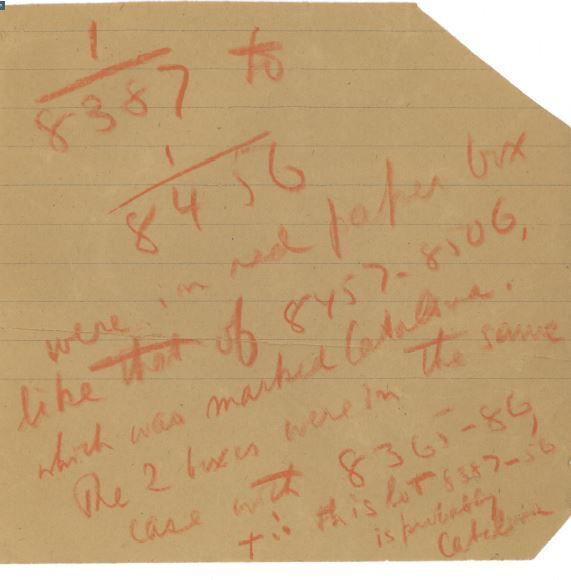 1
8387 to
1
8456
were in red paper box
like that of 8457-8506,
which was marked Catalina.
The 2 boxes were in the same
case with 8365-86,
+ is this lot 8387-56
is probably
Catalina